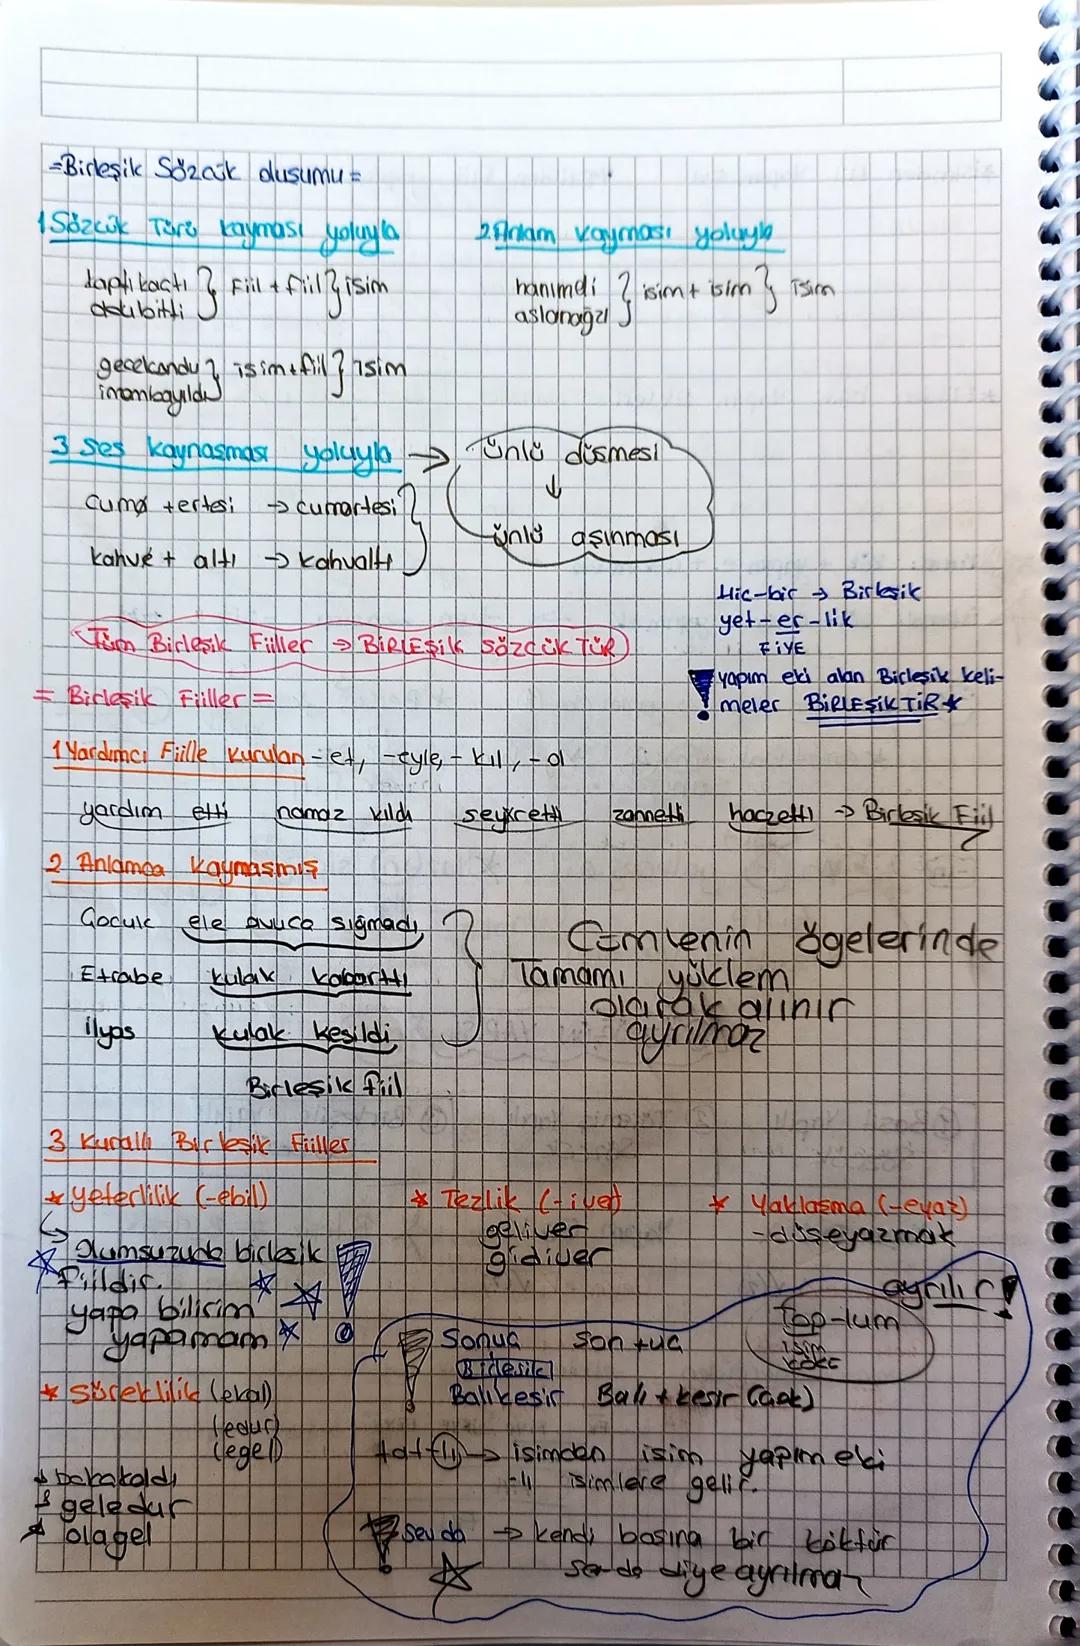 =Birleşik Sözcük duşumu=
1 Sözcük Türü kayması yoluyla
kaptıkaçtı } Fiil + fiil } isim
dedubitti
gecekondu } isim + fiil } isim
imambayıldı
2. Anlam kayması yoluyla
hanımeli } isim + isim } isim
aslanağzı
3 Ses kaynaşması yoluyla → ünlü düşmesi
↓
ünlü aşınması
cuma + ertesi → cumartesi }
kahve + altı → kahvaltı
Hiç-bir → Birleşik
yet-er-lik
FİYE
! yapım eki alan Birleşik keli-
meler BİRLEŞİKTİR *
Tüm Birleşik Fiiller → BİRLEŞİK SÖZCÜKTÜR
= Birleşik Fiiller =
1 Yardımcı Fiille Kurulan -et, -eyle, -kıl, -ol
yardım etti namaz kıldı seyretti zannetti haczetti → Birleşik Fiil
2 Anlamca Kaynaşmış
Çocuk ele avuca sığmadı
Etrabe kulak kabarttı
İlyas kulak kesildi
Birleşik fiil
Cümlenin ögelerinde
Tamamı yüklem
olarak alınır
ayrılmaz
3 Kurallı Birleşik Fiiller
* Yeterlilik (-ebil)
Olumsuzunda birleşik
fiildir.
yapa bilirim
yapamam
* Süreklilik (ekal)
(edur)
(egel)
bakakaldı
geledur
olagel
* Tezlik (-iver)
geliver
gidiver
* Yaklaşma (-eyaz)
-düşeyazmak
ayrılır!
top-lum
isim
kökü
! Sonuç son + uç
Birleşik
Balıkesir Balı + kesir (çok)
tat+lı → isimden isim yapım eki
-lı isimlere gelir.
! sevda → kendi başına bir köktür
sev-da diye ayrılmaz